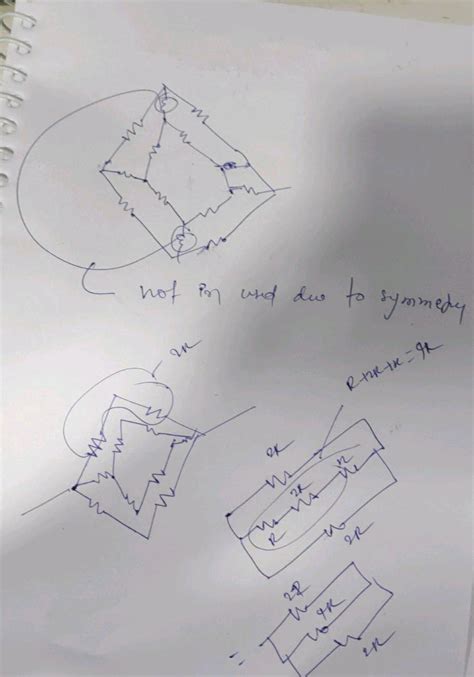 not in used due to symmetry
2R
R+2R+R=4R
2R
R
2R
R
2R
=
2R
4R
2R